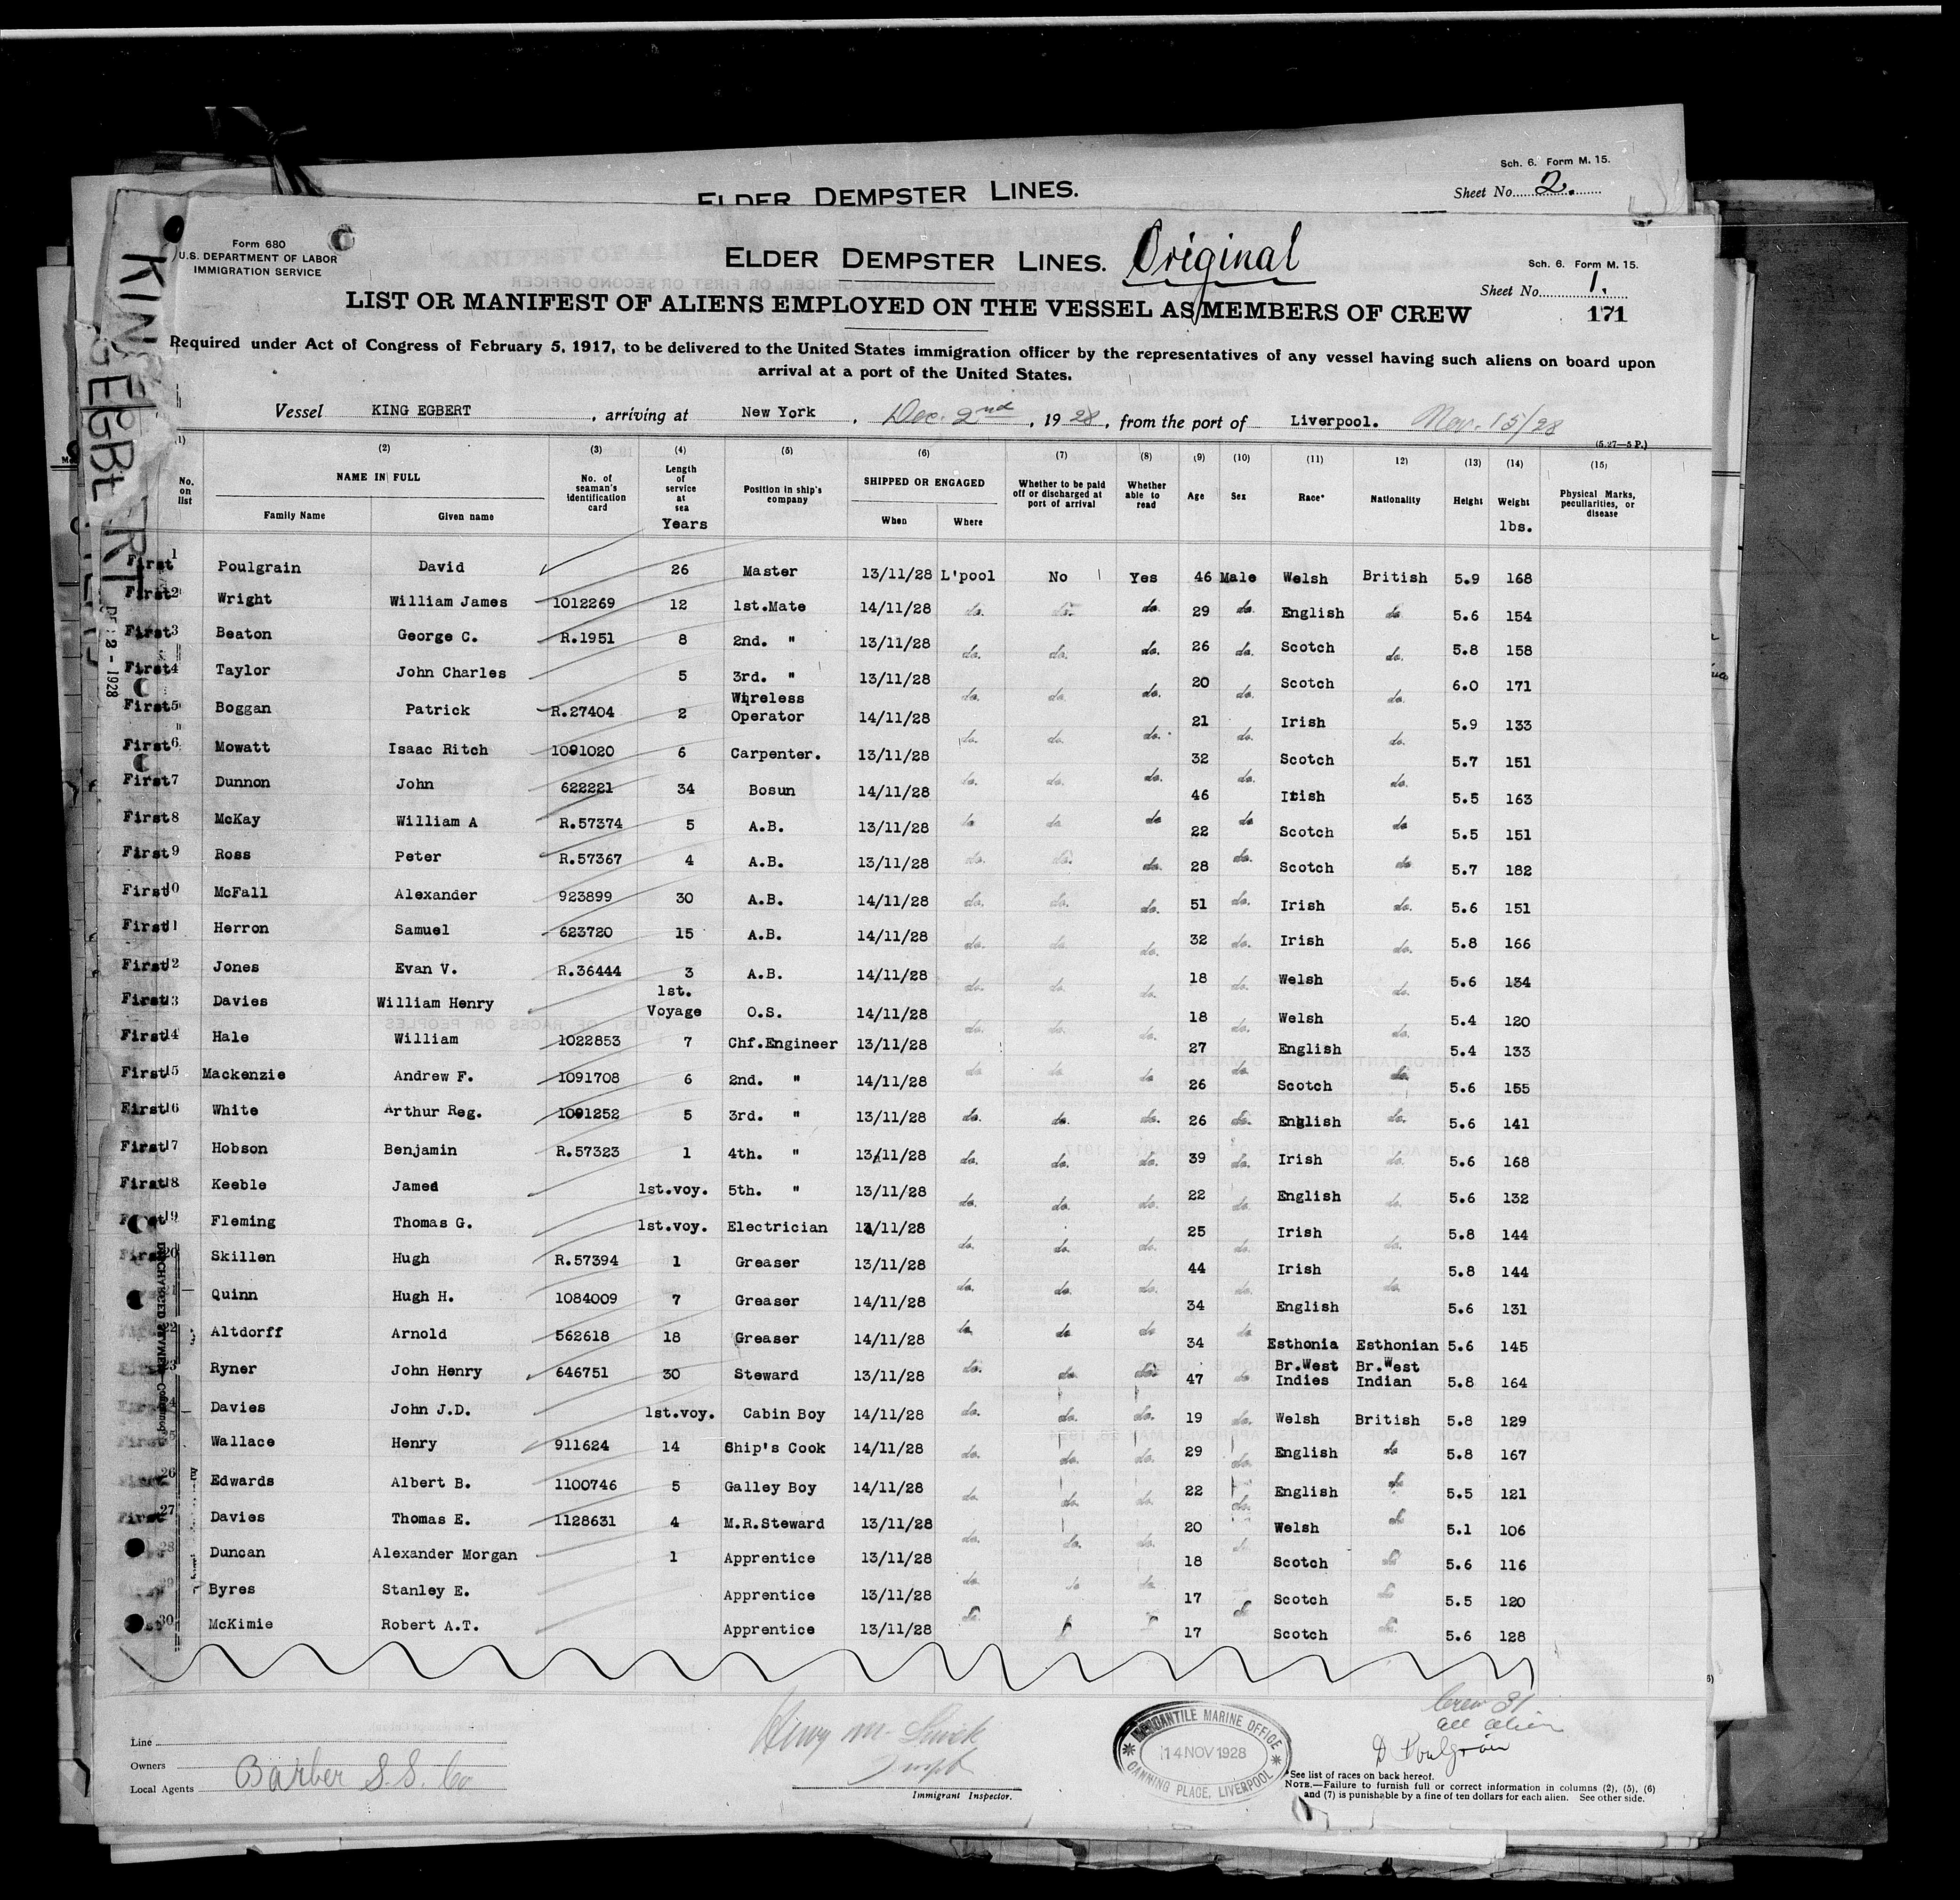 Sch. 6. Form M. 15.
ELDER DEMPSTER LINES.
Sheet No. 2.
Form 680
U.S. DEPARTMENT OF LABOR
IMMIGRATION SERVICE
KING EGBERT
ELDER DEMPSTER LINES. Original
Sch. 6. Form M. 15.
Sheet No. 1.
171
LIST OR MANIFEST OF ALIENS EMPLOYED ON THE VESSEL AS MEMBERS OF CREW
Required under Act of Congress of February 5, 1917, to be delivered to the United States immigration officer by the representatives of any vessel having such aliens on board upon
arrival at a port of the United States.
Vessel KING EGBERT, arriving at New York, Dec. 2nd, 1928, from the port of Liverpool. Nov. 15/28
(5.27—5 P.)
(1) (2) (3) (4) (5) (6) (7) (8) (9) (10) (11) 12) (13) (14) (15)
No. on list NAME IN FULL No. of seaman's identification card Length of service at sea Position in ship's company SHIPPED OR ENGAGED Whether to be paid off or discharged at port of arrival Whether able to read Age Sex Race* Nationality Height Weight Physical Marks, peculiarities, or disease
Family Name Given name Years When Where lbs.
First 1 Poulgrain David 26 Master 13/11/28 L'pool No Yes 46 Male Welsh British 5.9 168
First 2 Wright William James 1012269 12 1st.Mate 14/11/28 do. do. do. 29 do. English do 5.6 154
First 3 Beaton George C. R.1951 8 2nd. " 13/11/28 do. do. do. 26 do. Scotch do. 5.8 158
First 4 Taylor John Charles 5 3rd. " 13/11/28 do. do. do. 20 do. Scotch do. 6.0 171
First 5 Boggan Patrick R.27404 2 Wireless Operator 14/11/28 do. do. do. 21 do. Irish do. 5.9 133
First 6 Mowatt Isaac Ritch 1091020 6 Carpenter. 13/11/28 do. do. do. 32 do. Scotch do. 5.7 151
First 7 Dunnon John 622221 34 Bosun 14/11/28 do. do do 46 do Irish do 5.5 163
First 8 McKay William A R.57374 5 A.B. 13/11/28 do. do. do. 22 do. Scotch do 5.5 151
First 9 Ross Peter R.57367 4 A.B. 13/11/28 do. do. do. 28 do. Scotch do. 5.7 182
First 10 McFall Alexander 923899 30 A.B. 14/11/28 do. do. do. 51 do. Irish do. 5.6 151
First 11 Herron Samuel 623720 15 A.B. 14/11/28 do. do. do. 32 do. Irish do. 5.8 166
First 12 Jones Evan V. R.36444 3 A.B. 14/11/28 do. do. do. 18 do. Welsh do. 5.6 134
First 13 Davies William Henry 1st. Voyage O.S. 14/11/28 do. do. do. 18 do. Welsh do. 5.4 120
First 14 Hale William 1022853 7 Chf.Engineer 13/11/28 do do do 27 do. English do. 5.4 133
First 15 Mackenzie Andrew F. 1091708 6 2nd. " 14/11/28 26 Scotch 5.6 155
First 16 White Arthur Reg. 1091252 5 3rd. " 13/11/28 do. do. do. 26 do. English do. 5.6 141
First 17 Hobson Benjamin R.57323 1 4th. " 13/11/28 do. do. do. 39 do. Irish do. 5.6 168
First 18 Keeble James 1st.voy. 5th. " 13/11/28 do. do. do. 22 do. English do. 5.6 132
19 Fleming Thomas G. 1st.voy. Electrician 14/11/28 do. do. do. 25 Irish do. 5.8 144
First 20 Skillen Hugh R.57394 1 Greaser 13/11/28 do. do. do. 44 Irish do. 5.8 144
21 Quinn Hugh H. 1084009 7 Greaser 14/11/28 do. do do 34 do English 5.6 131
22 Altdorff Arnold 562618 18 Greaser 14/11/28 34 Esthonia Esthonian 5.6 145
23 Ryner John Henry 646751 30 Steward 13/11/28 do. do. do. 47 do Br.West Indies Br.West Indian 5.8 164
Davies John J.D. 1st.voy. Cabin Boy 14/11/28 do. do. do. 19 do. Welsh British 5.8 129
Wallace Henry 911624 14 Ship's Cook 14/11/28 do. do. do. 29 do. English do 5.8 167
26 Edwards Albert B. 1100746 5 Galley Boy 14/11/28 do. do. do. 22 do. English do 5.5 121
First 27 Davies Thomas E. 1128631 4 M.R.Steward 13/11/28 do. do. do. 20 do. Welsh do 5.1 106
28 Duncan Alexander Morgan 1 Apprentice 13/11/28 do. do do. 18 Scotch do 5.6 116
Byres Stanley E. Apprentice 13/11/28 do. 17 do Scotch do 5.5 120
30 McKimie Robert A.T. Apprentice 13/11/28 17 Scotch do. 5.6 128
Crew 31
all alien
D Poulgrain
Line
Owners
Local Agents Barber S.S. Co
Immigrant Inspector.
MERCANTILE MARINE OFFICE
14 NOV 1928
CANNING PLACE, LIVERPOOL
*See list of races on back hereof.
NOTE.—Failure to furnish full or correct information in columns (2), (5), (6)
and (7) is punishable by a fine of ten dollars for each alien. See other side.